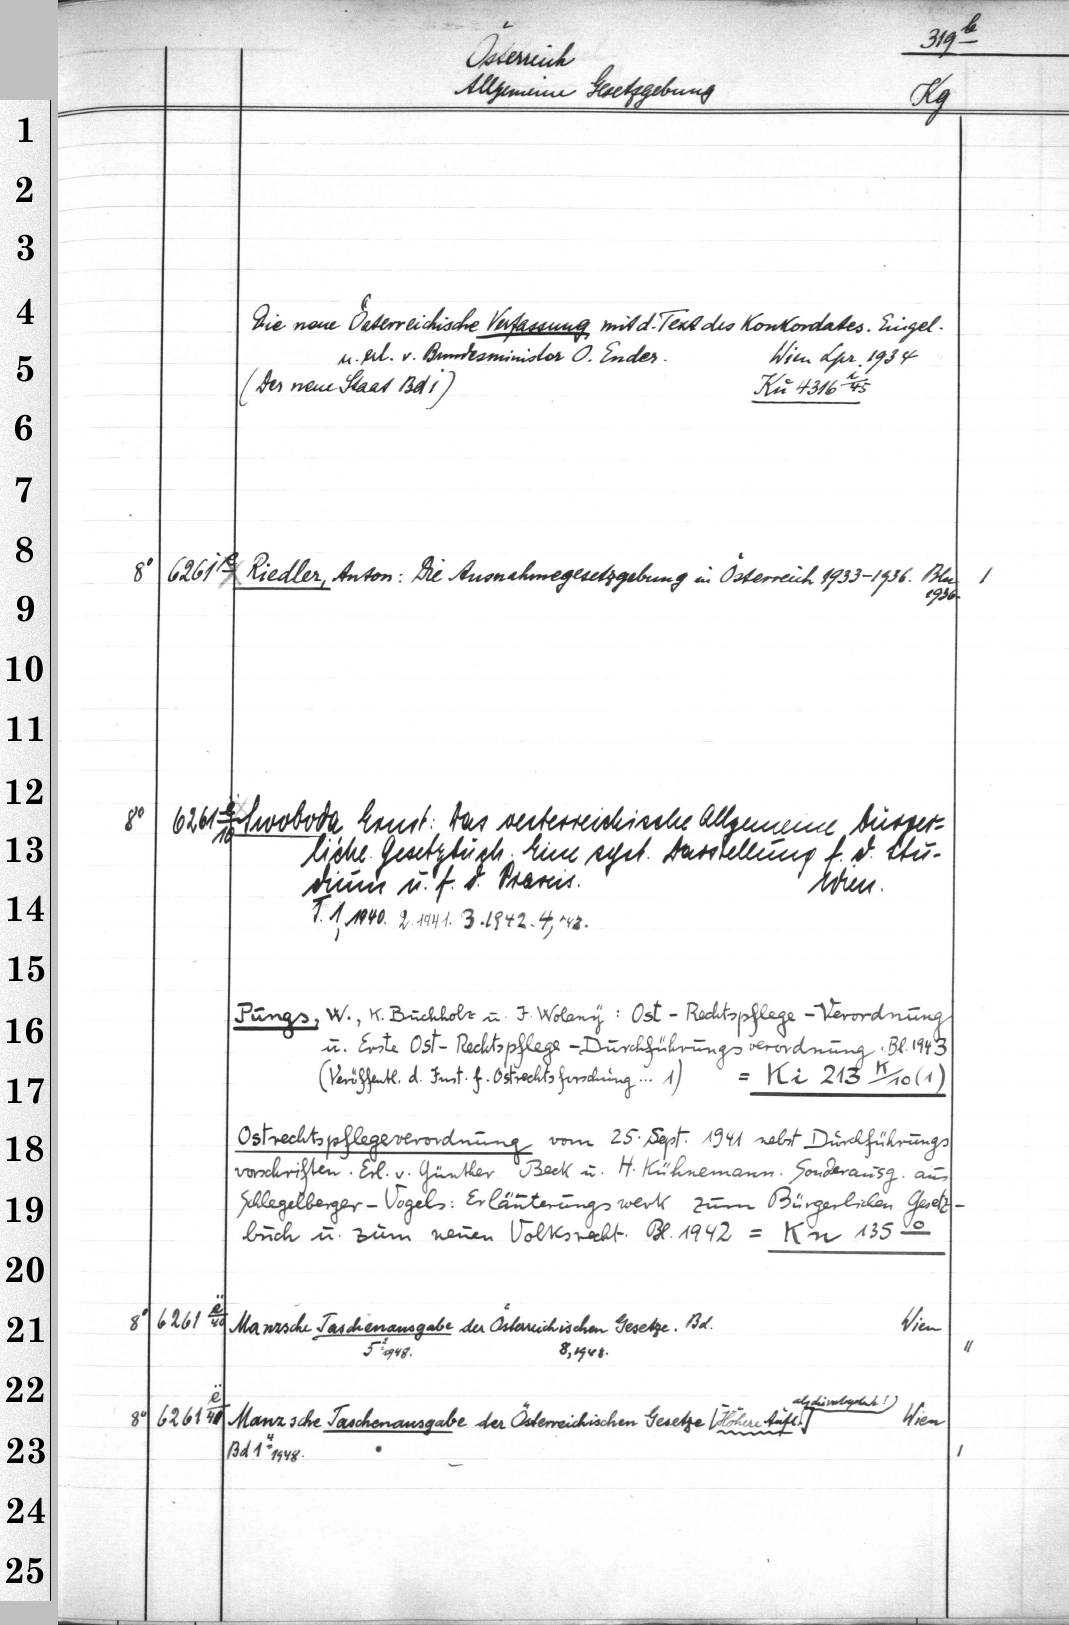 Österreich
319 b
Allgemeine Gesetzgebung
Kg
1
2
3
4
Die neue Österreichische Verfassung mit d. Text des Konkordates. Eingel.
u. erl. v. Bundesminister O. Ender. Wien Lpz. 1934
5
(Der neue Staat Bd 1) Kü 4316 i/45
6
7
8
8° 6261 Riedler, Anton: Die Ausnahmegesetzgebung in Österreich 1933-1936. Bln
1936.
9
10
11
12
8° 6261 ë/10 Swoboda Ernst: Das oesterreichische Allgemeine Bürger-
13
liche Gesetzbuch. Eine syst. Darstellung f. d. Stu-
dium u. f. d. Praxis. Wien.
14
T. 1, 1940. 2. 1941. 3. 1942. 4,
15
Pungs, W., K. Buchholz u. J. Wolany: Ost-Rechtspflege-Verordnung
16
u. Erste Ost-Rechtspflege-Durchführungsverordnung. Bl. 1943
17
(Veröffentl. d. Inst. f. Ostrechtsforschung ... 1) = Ki 213 K/10 (1)
18
Ostrechtspflegeverordnung vom 25. Sept. 1941 nebst Durchführungs
vorschriften. Erl. v. Günther Beck u. H. Kühnemann. Sonderausg. aus
19
Schlegelberger-Vogels: Erläuterungswerk zum Bürgerlichen Gesetz-
buch u. zum neuen Volksrecht. Bl. 1942 = Kn 135 o
20
21
8° 6261 ë/40 Manzsche Taschenausgabe der Österreichischen Gesetze. Bd. Wien
5 1948. 8, 1948.
22
8° 6261 ë Manzsche Taschenausgabe der Österreichischen Gesetze [Höhere Aufl.] Wien
23
Bd 1 4 1948.
24
25